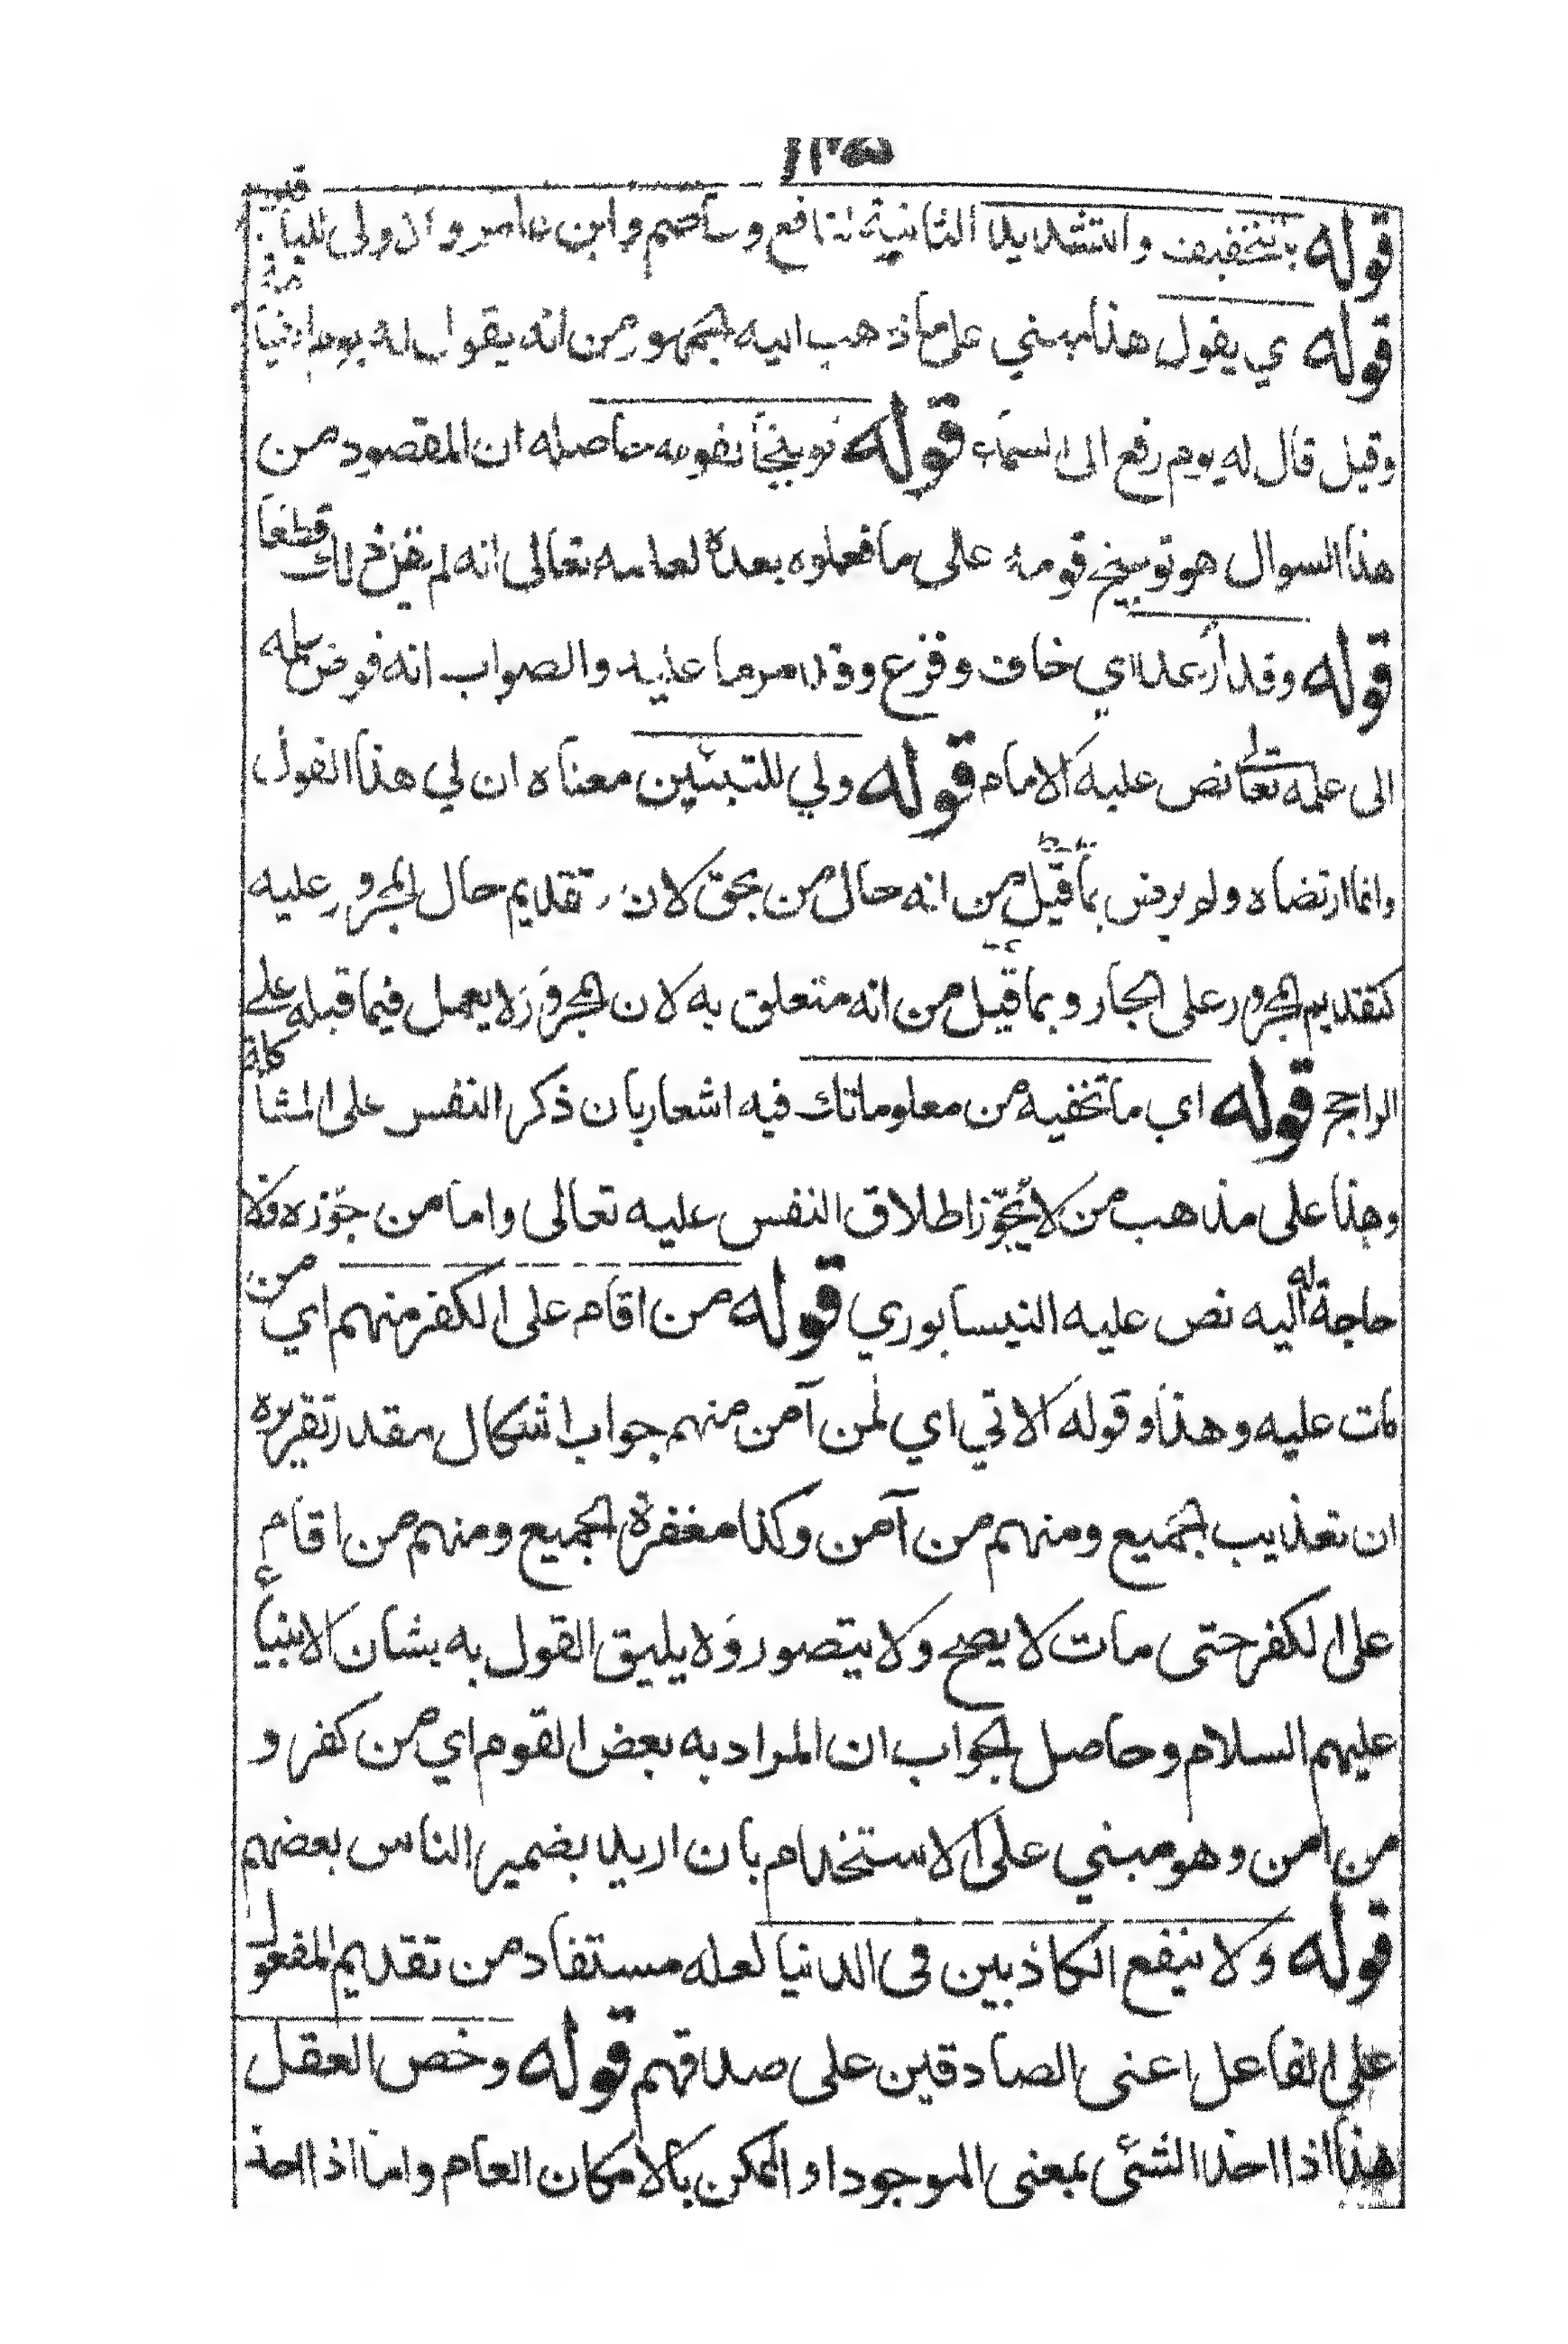 قوله بالتخفيف والتشديد الثانية لنافع وعاصم وابن عامر والاولى للباقية
قوله اي يقول هذا مبني على ما ذهب اليه الجمهور من انه يقول له يوم القيامة
وقيل قال له يوم رفع الى السماء قوله توبيخا لقومه حاصله ان المقصود من
هذا السوال هو توبيخ قومه على ما فعلوه بعده لعلمه تعالى انه لم يقل ذلك قطعا
قوله وقد ارعد اي خاف وفزع وقد مر ما عليه والصواب انه فوض علمه
الى علمه تعالى نص عليه الامام قوله ولي للتبيين معناه ان لي هذا القول
وانما ارتضاه ولم يرض بما قيل من انه حال من بحق لان تقديم حال المجرور عليه
كتقديم المجرور على الجار وبما قيل من انه متعلق به لان المجرور لا يعمل فيما قبله على
الراجح قوله اي ما تخفيه من معلوماتك فيه اشعار بان ذكر النفس على المشاكلة
وهذا على مذهب من لا يجوز اطلاق النفس عليه تعالى واما من جوزه فلا
حاجة له اليه نص عليه النيسابوري قوله من اقام على الكفر منهم اي من
مات عليه وهذا وقوله الاتي اي لمن آمن منهم جواب اشكال مقدر تقريره
ان تعذيب الجميع ومنهم من آمن وكذا مغفرة الجميع ومنهم من اقام
على الكفر حتى مات لا يصح ولا يتصور ولا يليق القول به بشان الانبياء
عليهم السلام وحاصل الجواب ان المراد به بعض القوم اي من كفر و
من امن وهو مبني على الاستخدام بان اريد بضمير الناس بعضهم
قوله ولا ينفع الكاذبين فى الدنيا لعله مستفاد من تقديم المفعول
على الفاعل اعنى الصادقين على صدقهم قوله وخص العقل
هذا اذا اخذ الشئى بمعنى الموجود او الممكن بالامكان العام واما اذا اخذ